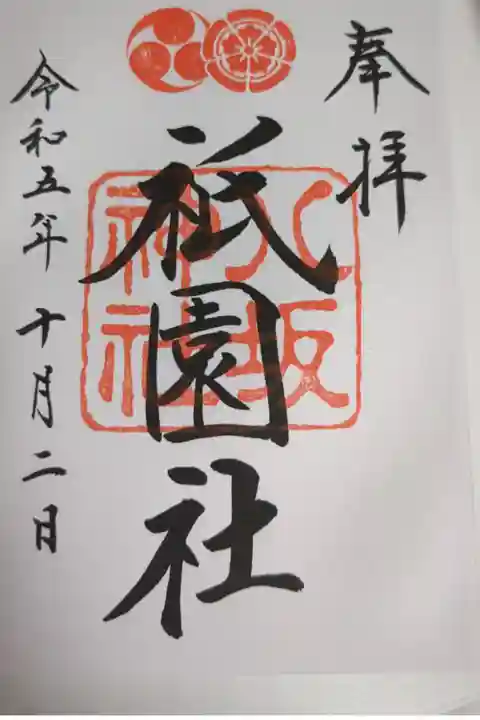 奉拝
八坂神社
祇園社
令和五年十月二日